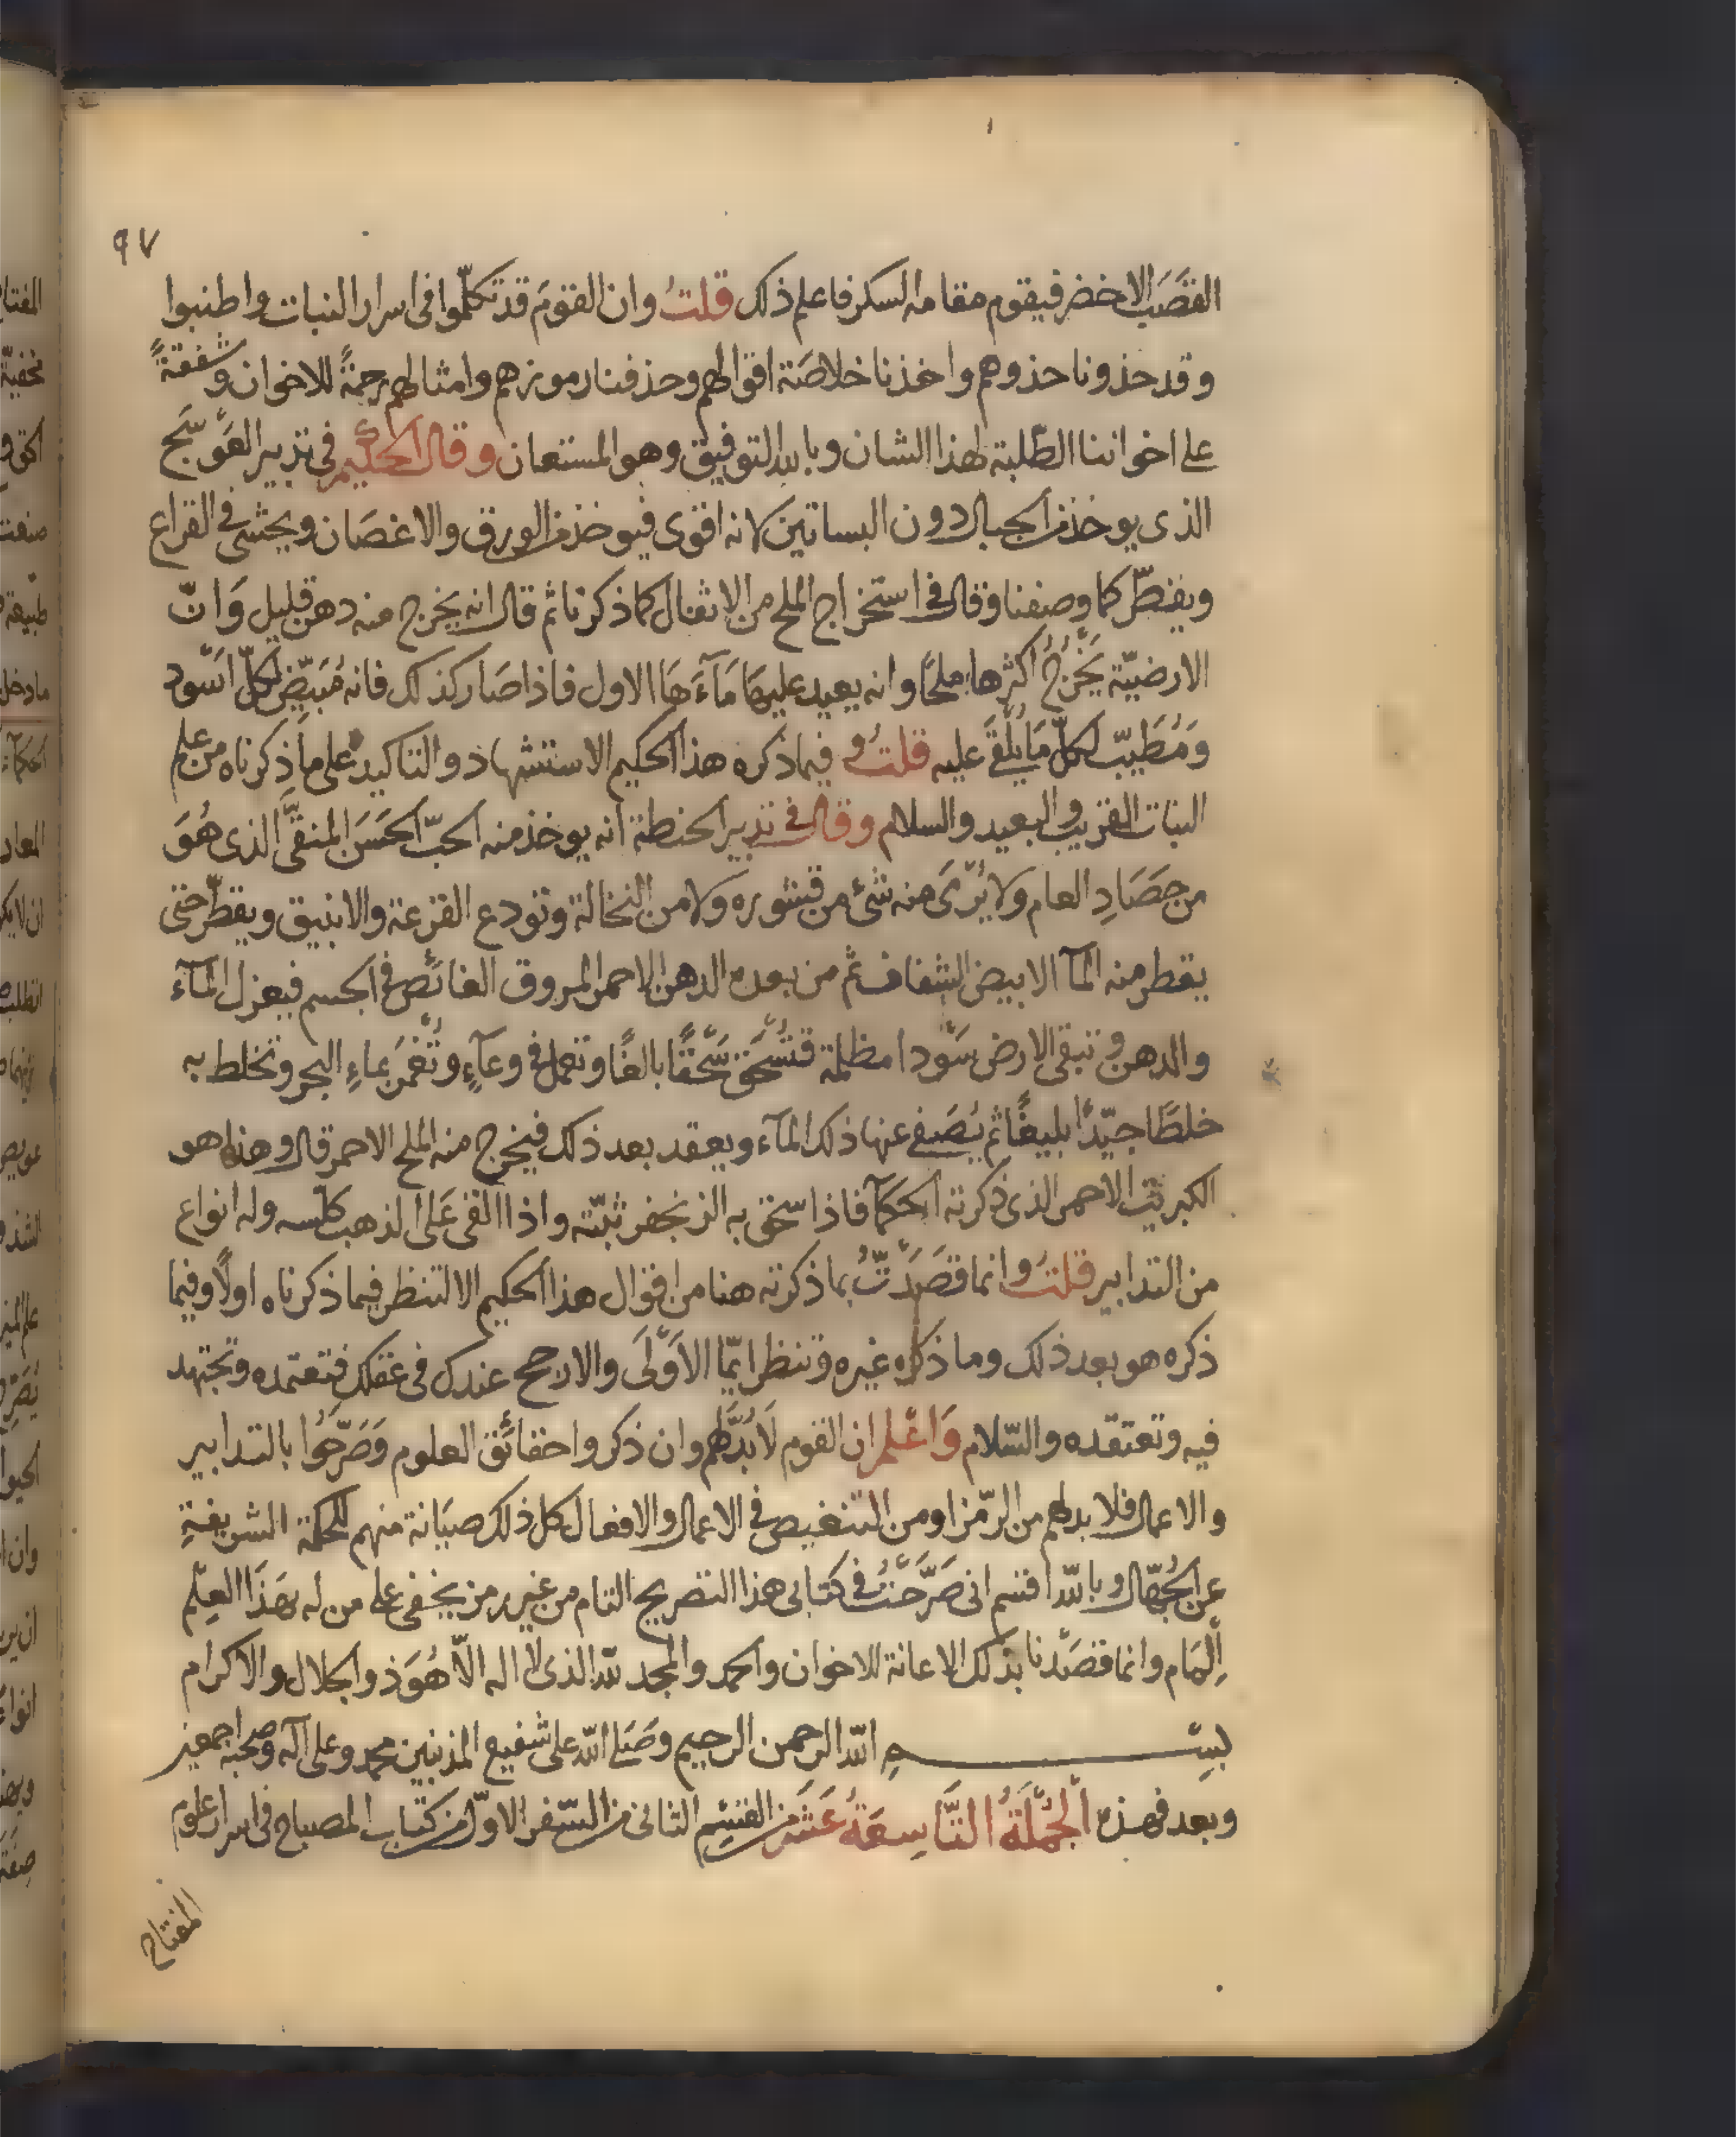 ٩٧
القصَب الاخضر فيقوم مقامه السكر فاعلم ذلك قلتُ وان القومَ قد تكلّموا فى اسرار النبات واطنبوا
وقد حذونا حذوهم واخذنا خلاصَة اقوالهم وحذفنا رموزهم وامثالهم رحمةً للاخوان وشفقةً
على اخواننا الطّلبة لهذا الشان وبالله التوفيق وهو المستعان وقال الحكيم فى تدبير العَوسَج
الذى يوخذ من الجبال دون البساتين لانه اقوى فيوخذ من الورق والاغصَان ويحشى فى القراع
ويقطّر كما وصفنا وقال فى استخراج الملح من الاثفال كما ذكرنا ثم قال انه يخرج منه دهن قليل وَانّ
الارضيّة يَخْرُجُ اكثرها ملحًا وانه يعيد عليها مَآءَهَا الاول فاذا صَار كذلك فانه مُبَيّض لكلّ اسْود
وَمُطَيبّ لكلّ مَا يُلْقَى عليه قلتُ وفيما ذكره هذا الحكيم الاستشهاد والتاكيد على ما ذكرناه من علم
النبات القريب والبعيد والسلام وقال فى تدبير الحنطة انه يوخذ منه الحبّ الحَسَن المنقَّى الذى هُوَ
من حَصَادِ العام ولا يُرَى منه شئ من قشوره ولا من النخالة وتودع القرعة والانبيق ويقطّر حتى
يقطر منه المآ الابيض الشفاف ثم من بعده الدهن الاحمر المروق الغائص فى الجسم فيعزل المآء
والدهن وتبقى الارض سَودا مظلمة فتُسْحَق سَحْقًا بالغًا وتعمل فى وعآءٍ وتُغْمَر بماءِ البحر وتخلط به
خلطًا جيّدًا بليغًا ثم يُصَفى عنها ذلك المآء ويعقد بعد ذلك فيخرج منه الملح الاحمر قال وهذا هو
الكبريت الاحمر الذى ذكرته الحكمآ فاذا سحق به الزنجفر ثبّته واذا القى عَلى الذهب كلّسه وله انواع
من التدابير قلتُ وانما قصَدْتُ بما ذكرته هنا من اقوال هذا الحكيم الا لتنظر فيما ذكرناه اولًا وفيما
ذكره هو بعد ذلك وما ذكره غيره وتنظر ايّما الاَوْلَى والارجح عندك فى عقلك فتعتمده وتجتهد
فيه وتعتقده والسّلام وَاعْلم ان القوم لَا بُدَّ لهم وان ذكروا حقائق العلوم وَصَرّحُوا بالتدابير
والاعمال فلا بد لهم من الرّمز او من التنغيص فى الاعمال والافعال كل ذلك صيَانة منهم للحكمة الشريفةِ
عن الجُهّال وبالله اقسم انى صَرَّحْتُ فى كتابى هذا التصريح التام من غير رمز يخفى على من له بهَذا العِلْم
اِلْمَام وانما قصَدْنا بذلك الاعانة للاخوان والحمد والمجد لله الذى لا اله الّا هُوَ ذو الجلال والاكرام
بسم الله الرحمن الرحيم وَصَلى الله على شفيع المذنبين محمد وعلى آله وصحبه اجمعين
وبعد فهذه الْجُمْلَةُ التَّاسِعَةُ عَشَر من القسْم الثانى من السّفر الاوّل من كتاب المصباح فى اسرار علوم
المفتاح